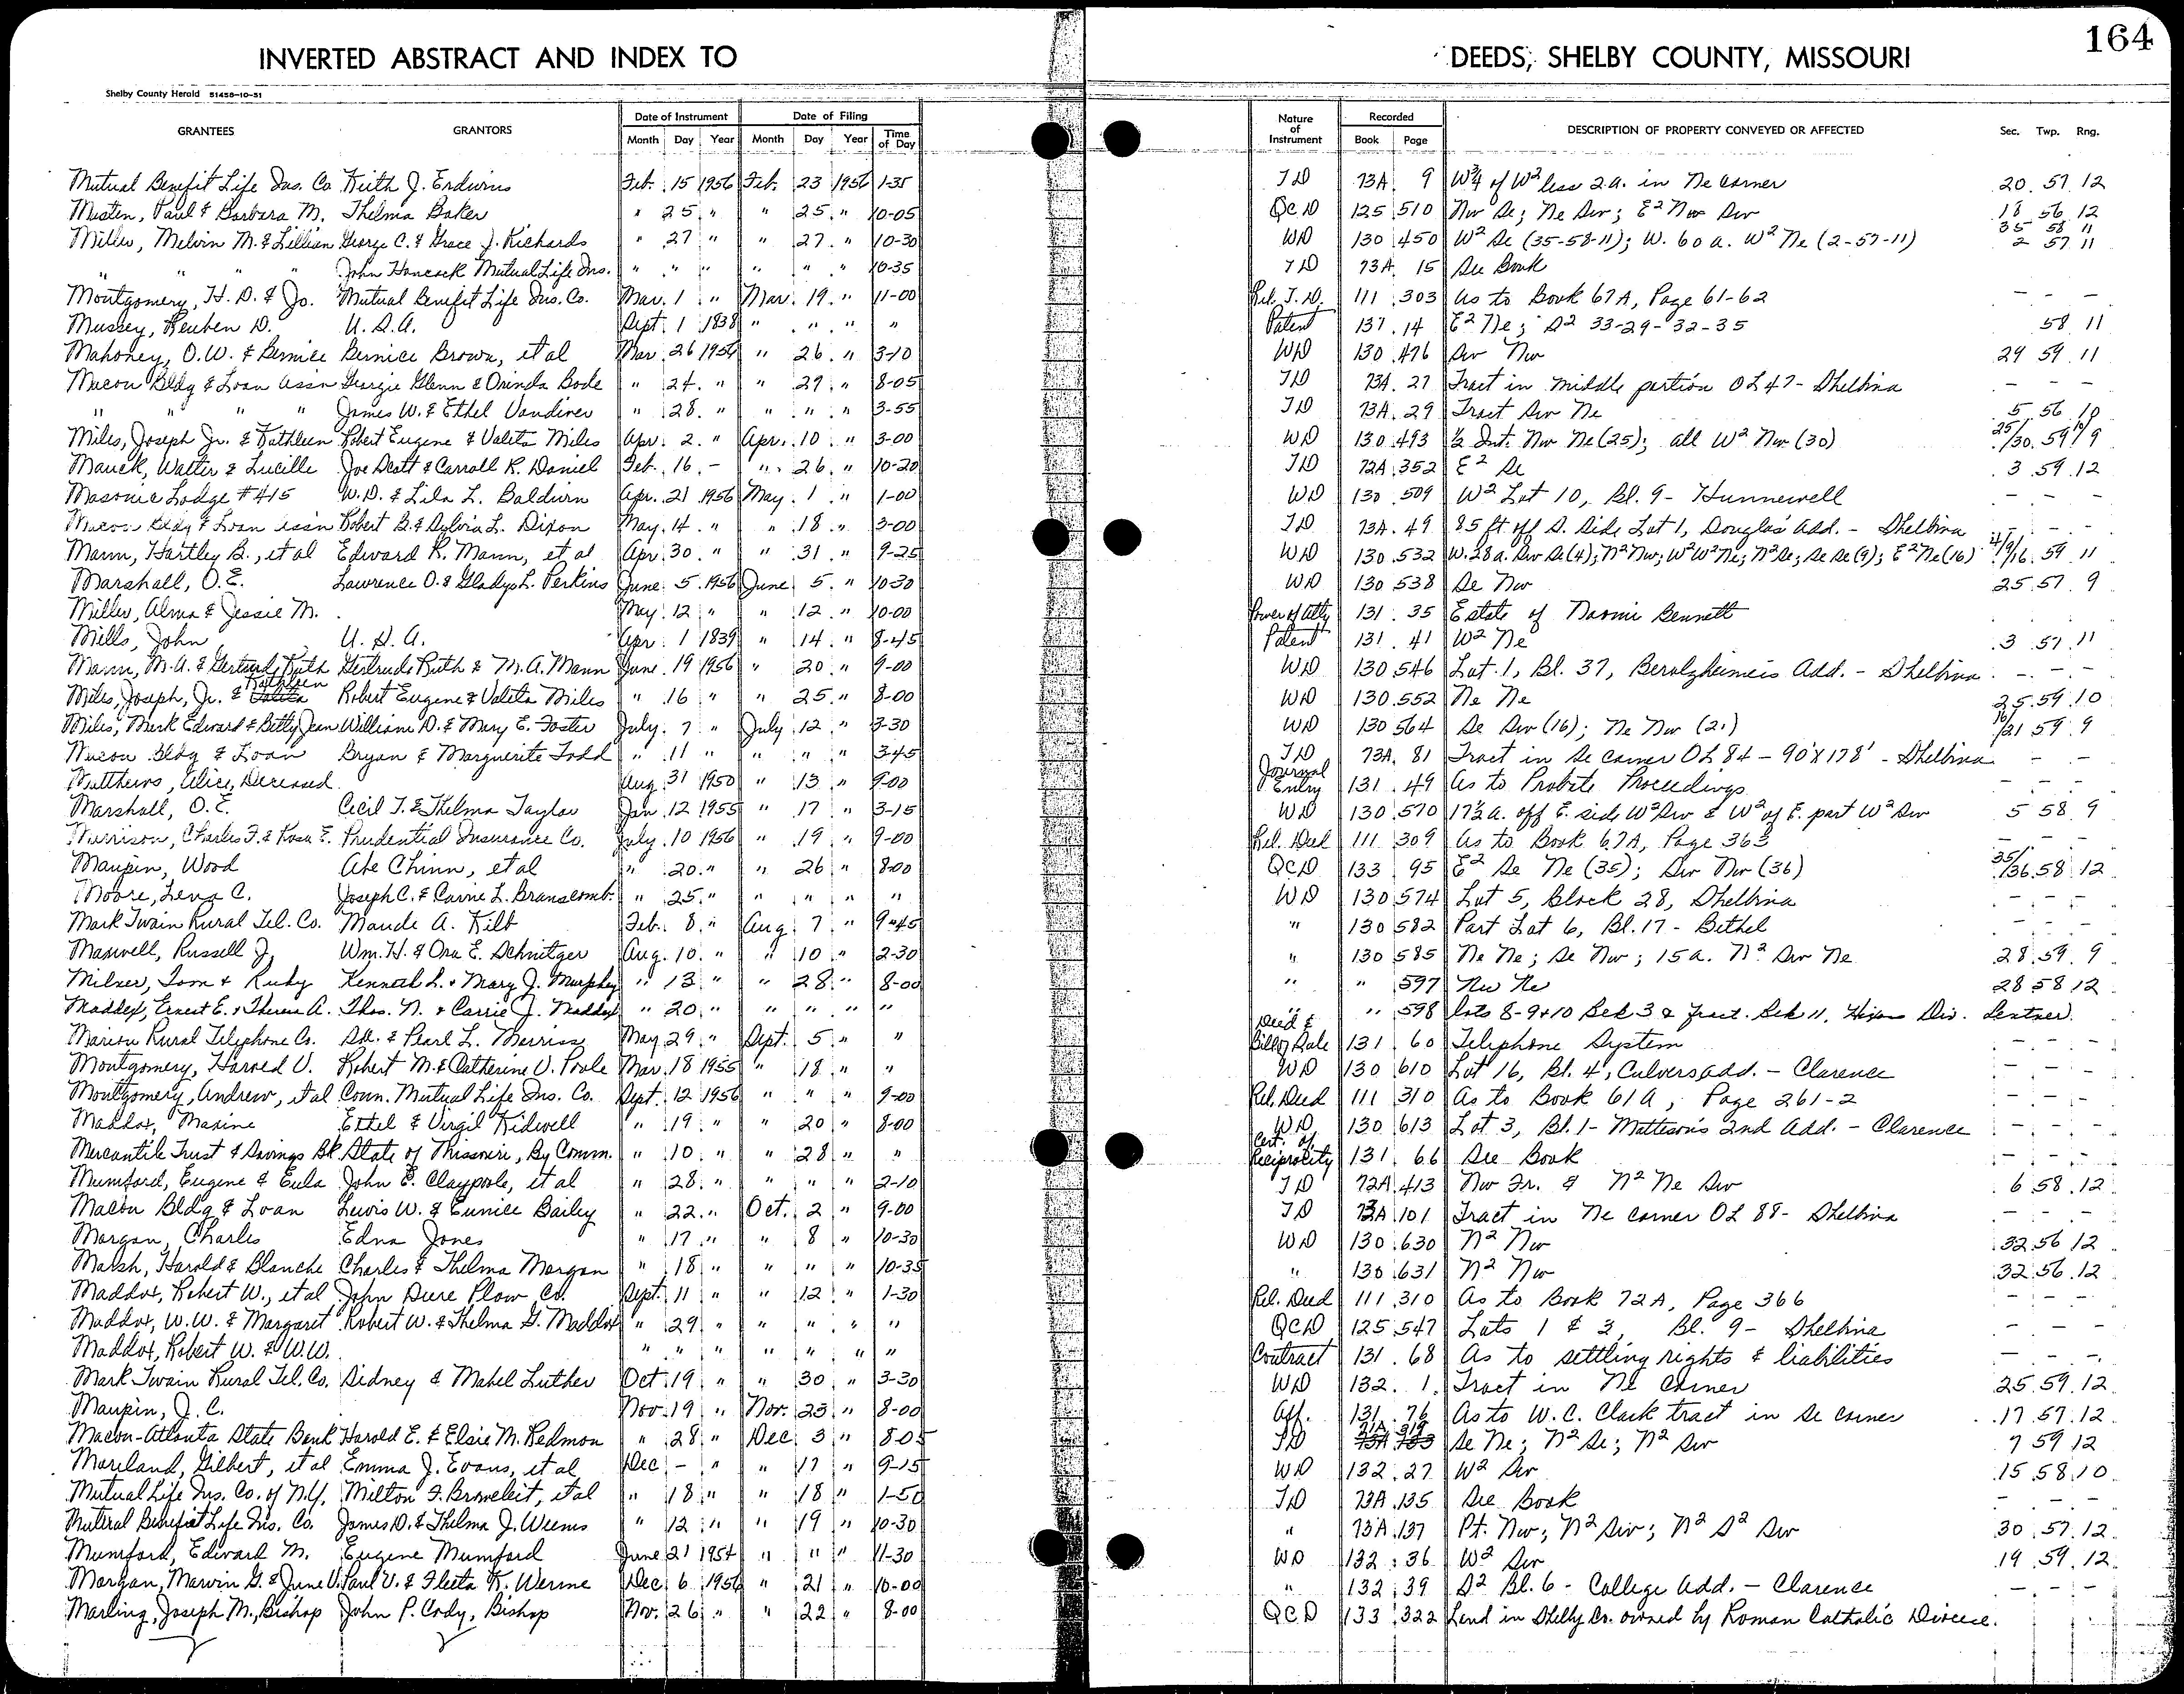 164
INVERTED ABSTRACT AND INDEX TO DEEDS, SHELBY COUNTY, MISSOURI
Shelby County Herald 51458-10-51
GRANTEES GRANTORS Date of Instrument Date of Filing Nature of Instrument Recorded DESCRIPTION OF PROPERTY CONVEYED OR AFFECTED Sec. Twp. Rng.
Month Day Year Month Day Year Time of Day Book Page
Mutual Benefit Life Ins. Co Keith J. Erdwins Feb. 15 1956 Feb. 23 1956 1-35 TD 73A 9 W¾ of W² less 2 a. in Ne corner 20 57 12
Musten, Paul & Barbara M. Thelma Baker " 25 " " 25 " 10-05 QCD 125 510 Nw Se; Ne Sw; E² Nw Sw 18 56 12
Miller, Melvin M. & Lillian George C. & Grace J. Richards " 27 " " 27 " 10-30 WD 130 450 W² Se (35-58-11); W. 60 a. W² Ne (2-57-11) 35 58 11 2 57 11
" " " " John Hancock Mutual Life Ins. " " " " " " 10-35 TD 73A 15 See Book
Montgomery, H. D. & Jo. Mutual Benefit Life Ins. Co. Mar. 1 " Mar. 19 " 11-00 Rel. T. D. 111 303 As to Book 67A, Page 61-62 - - -
Mussey, Reuben D. U. S. A. Sept. 1 1838 " " " " Patent 137 14 E² Ne; S² 33-29-32-35 58 11
Mahoney, O. W. & Bernice Bernice Brown, et al Mar. 26 1956 " 26 " 3-10 WD 130 476 Sw Nw 29 59 11
Macon Bldg & Loan Assn Georgie Glenn & Orinda Bode " 24 " " 29 " 8-05 TD 73A 27 Tract in middle portion OL 47 - Shelbina - - -
" " " " James W. & Ethel Vandiver " 28 " " " " 3-55 TD 73A 29 Tract Sw Ne 5 56 10
Miles, Joseph Jr. & Kathleen Robert Eugene & Valita Miles Apr. 2 " Apr. 10 " 3-00 WD 130 493 ½ Int. Nw Ne (25); all W² Nw (30) 25/30 59 10/9
Mauck, Walter & Lucille Joe Scott & Carroll R. Daniel Feb. 16 - " 26 " 10-20 TD 72A 352 E² Se 3 59 12
Masonic Lodge #415 W. D. & Lila L. Baldwin Apr. 21 1956 May 1 " 1-00 WD 130 509 W² Lot 10, Bl. 9 - Hunnewell - - -
Macon Bldg & Loan assn Robert B. & Sylvia L. Dixon May 14 " " 18 " 3-00 TD 73A 49 85 ft off S. side Lot 1, Douglas' Add. - Shelbina - - -
Mann, Hartley B., et al Edward R. Mann, et al Apr. 30 " " 31 " 9-25 WD 130 532 W. 28 a. Sw Se (4); N² Nw; W² W² Ne; N² Se; Se Se (9); E² Ne (16) 4/9/16 59 11
Marshall, O. E. Lawrence O. & Gladys L. Perkins June 5 1956 June 5 " 10-30 WD 130 538 Se Nw 25 57 9
Miller, Alma & Jessie M. May 12 " " 12 " 10-00 Power of Atty 131 35 Estate of Naomi Bennett
Mills, John U. S. A. Apr. 1 1839 " 14 " 8-45 Patent 131 41 W² Ne 3 57 11
Mann, M. A. & Gertrude Ruth Gertrude Ruth & M. A. Mann June 19 1956 " 20 " 9-00 WD 130 546 Lot 1, Bl. 37, Berolzheimer's Add. - Shelbina - - -
Miles, Joseph, Jr. & Kathleen Robert Eugene & Valeta Miles " 16 " " 25 " 8-00 WD 130 552 Ne Ne 25 59 10
Miles, Merk Edward & Betty Jean William D. & Mary E. Foster July 7 " July 12 " 3-30 WD 130 564 Se Sw (16); Ne Nw (21) 16/21 59 9
Macon Bldg & Loan Bryan & Marguerite Todd " 11 " " " " 3-45 TD 73A 81 Tract in Se corner OL 84 - 90' X 178' - Shelbina - -
Matthews, Alice, Deceased Aug. 31 1950 " 13 " 9-00 Journal Entry 131 49 As to Probate Proceedings - - -
Marshall, O. E. Cecil T. & Thelma Taylor Jan. 12 1955 " 17 " 3-15 WD 130 570 17½ a. off E. side W² Sw & W² of E. part W² Sw 5 58 9
Morrison, Charles F. & Rosa E. Prudential Insurance Co. July 10 1956 " 19 " 9-00 Rel. Deed 111 309 As to Book 67A, Page 363 - - -
Maupin, Wood Abe Chinn, et al " 20 " " 26 " 8-00 QCD 133 95 E² Se Ne (35); Sw Nw (36) 35/36 58 12
Moore, Lena C. Joseph C. & Carrie L. Branscomb " 25 " " " " " WD 130 574 Lot 5, Block 28, Shelbina - - -
Mark Twain Rural Tel. Co. Maude A. Kilb Feb. 8 " Aug. 7 " 9-45 " 130 582 Part Lot 6, Bl. 17 - Bethel - - -
Maxwell, Russell J. Wm. H. & Ora E. Schnitzer Aug. 10 " " 10 " 2-30 " 130 585 Ne Ne; Se Nw; 15 a. N² Sw Ne 28 59 9
Milner, Tom & Ruby Kenneth L. & Mary J. Murphey " 13 " " 28 " 8-00 " " 597 Nw Ne 28 58 12
Maddex, Ernest E. & Theresa A. Thos. N. & Carrie J. Maddex " 20 " " " " " " " 598 Lots 8-9 & 10 Blk 3 & Fract. Blk 11, Div. Lentner.
Marion Rural Telephone Co. & Pearl L. Morriss May 29 " Sept. 5 " " Deed & Bill of Sale 131 60 Telephone System - - -
Montgomery, Harved V. Robert M. & Catherine V. Poole Mar. 18 1955 " 18 " " WD 130 610 Lot 16, Bl. 4, Culvers Add. - Clarence - - -
Montgomery, Andrew, et al Conn. Mutual Life Ins. Co. Sept. 12 1956 " " " 9-00 Rel. Deed 111 310 As to Book 61A, Page 261-2 - - -
Maddox, Maxine Ethel & Virgil Kidwell " 19 " " 20 " 8-00 WD 130 613 Lot 3, Bl. 1 - Matteson's 2nd Add. - Clarence - - -
Mercantile Trust & Savings Bk State of Missouri, By Comm. " 10 " " 28 " " Cert. of Reciprocity 131 66 See Book - - -
Mumford, Eugene & Eula John E. Claypole, et al " 28 " " " " 2-10 TD 72A 413 Nw Fr. & N² Ne Sw 6 58 12
Macon Bldg & Loan Lewis W. & Eunice Bailey " 22 " Oct. 2 " 9-00 TD 73A 101 Tract in Ne corner OL 88 - Shelbina - - -
Morgan, Charles Edna Jones " 17 " " 8 " 10-30 WD 130 630 N² Nw 32 56 12
Marsh, Harold & Blanche Charles & Thelma Morgan " 18 " " " " 10-35 " 130 631 N² Nw 32 56 12
Maddox, Robert W., et al John Deere Plow Co. Sept. 11 " " 12 " 1-30 Rel. Deed 111 310 As to Book 72A, Page 366 - - -
Maddox, W. W. & Margaret Robert W. & Thelma G. Maddox " 29 " " " " " QCD 125 547 Lots 1 & 2, Bl. 9 - Shelbina - - -
Maddox, Robert W. & W. W. " " " " " " " Contract 131 68 As to settling rights & liabilities - - -
Mark Twain Rural Tel. Co. Sidney & Mabel Luther Oct. 19 " " 30 " 3-30 WD 132 1 Tract in Ne Corner 25 59 12
Maupin, J. C. Nov. 19 " Nov. 23 " 8-00 Aff. 131 76 As to W. C. Clark tract in Se corner 17 57 12
Macon-Atlanta State Bank Harold E. & Elsie M. Redmon " 28 " Dec. 3 " 8-05 TD 71A 319 Se Ne; N² Se; N² Sw 7 59 12
Moreland, Gilbert, et al Emma J. Evans, et al Dec. - " " 17 " 9-15 WD 132 27 W² Sw 15 58 10
Mutual Life Ins. Co. of N.Y. Milton F. Broweleit, et al " 18 " " 18 " 1-50 TD 73A 135 See Book - - -
Mutual Benefit Life Ins. Co. James D. & Thelma J. Weems " 12 " " 19 " 10-30 " 73A 137 Pt. Nw; N² Sw; N² S² Sw 30 57 12
Mumford, Edward M. Eugene Mumford June 21 1954 " " " 11-30 WD 132 36 W² Sw 19 59 12
Morgan, Marvin G. & June V. Paul V. & Fleeta K. Werme Dec. 6 1956 " 21 " 10-00 " 132 39 S² Bl. 6 - College Add. - Clarence - - -
Marling, Joseph M., Bishop John P. Cody, Bishop Nov. 26 " " 22 " 8-00 QCD 133 322 Land in Shelby Co. owned by Roman Catholic Diocese.